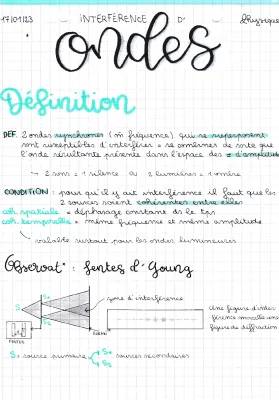 17/01/23 INTERFÉRENCE D' Physique
ondes
Définition
DEF. 2 ondes synchrones (m̂ fréquence) qui se superposent
sont susceptibles d'interférer = se sommer de sorte que
l'onde résultante présente dans l'espace des ≠ d'amplitude
↳ 2 sons = 1 silence ou 2 lumières = 1 ombre
CONDITION : pour qu'il y ait interférence il faut que les
2 sources soient cohérentes entre elles
coh. spatiale = déphasage constant ds le tps
coh. temporelle = même fréquence et même amplitude
↳ valable surtout pour les ondes lumineuses
Observat° : fentes d'Young
zone d'interférence
S S₁ S₂
Une figure d'inter
férence module une
figure de diffraction
S = source primaire S₁ S₂ sources secondaires